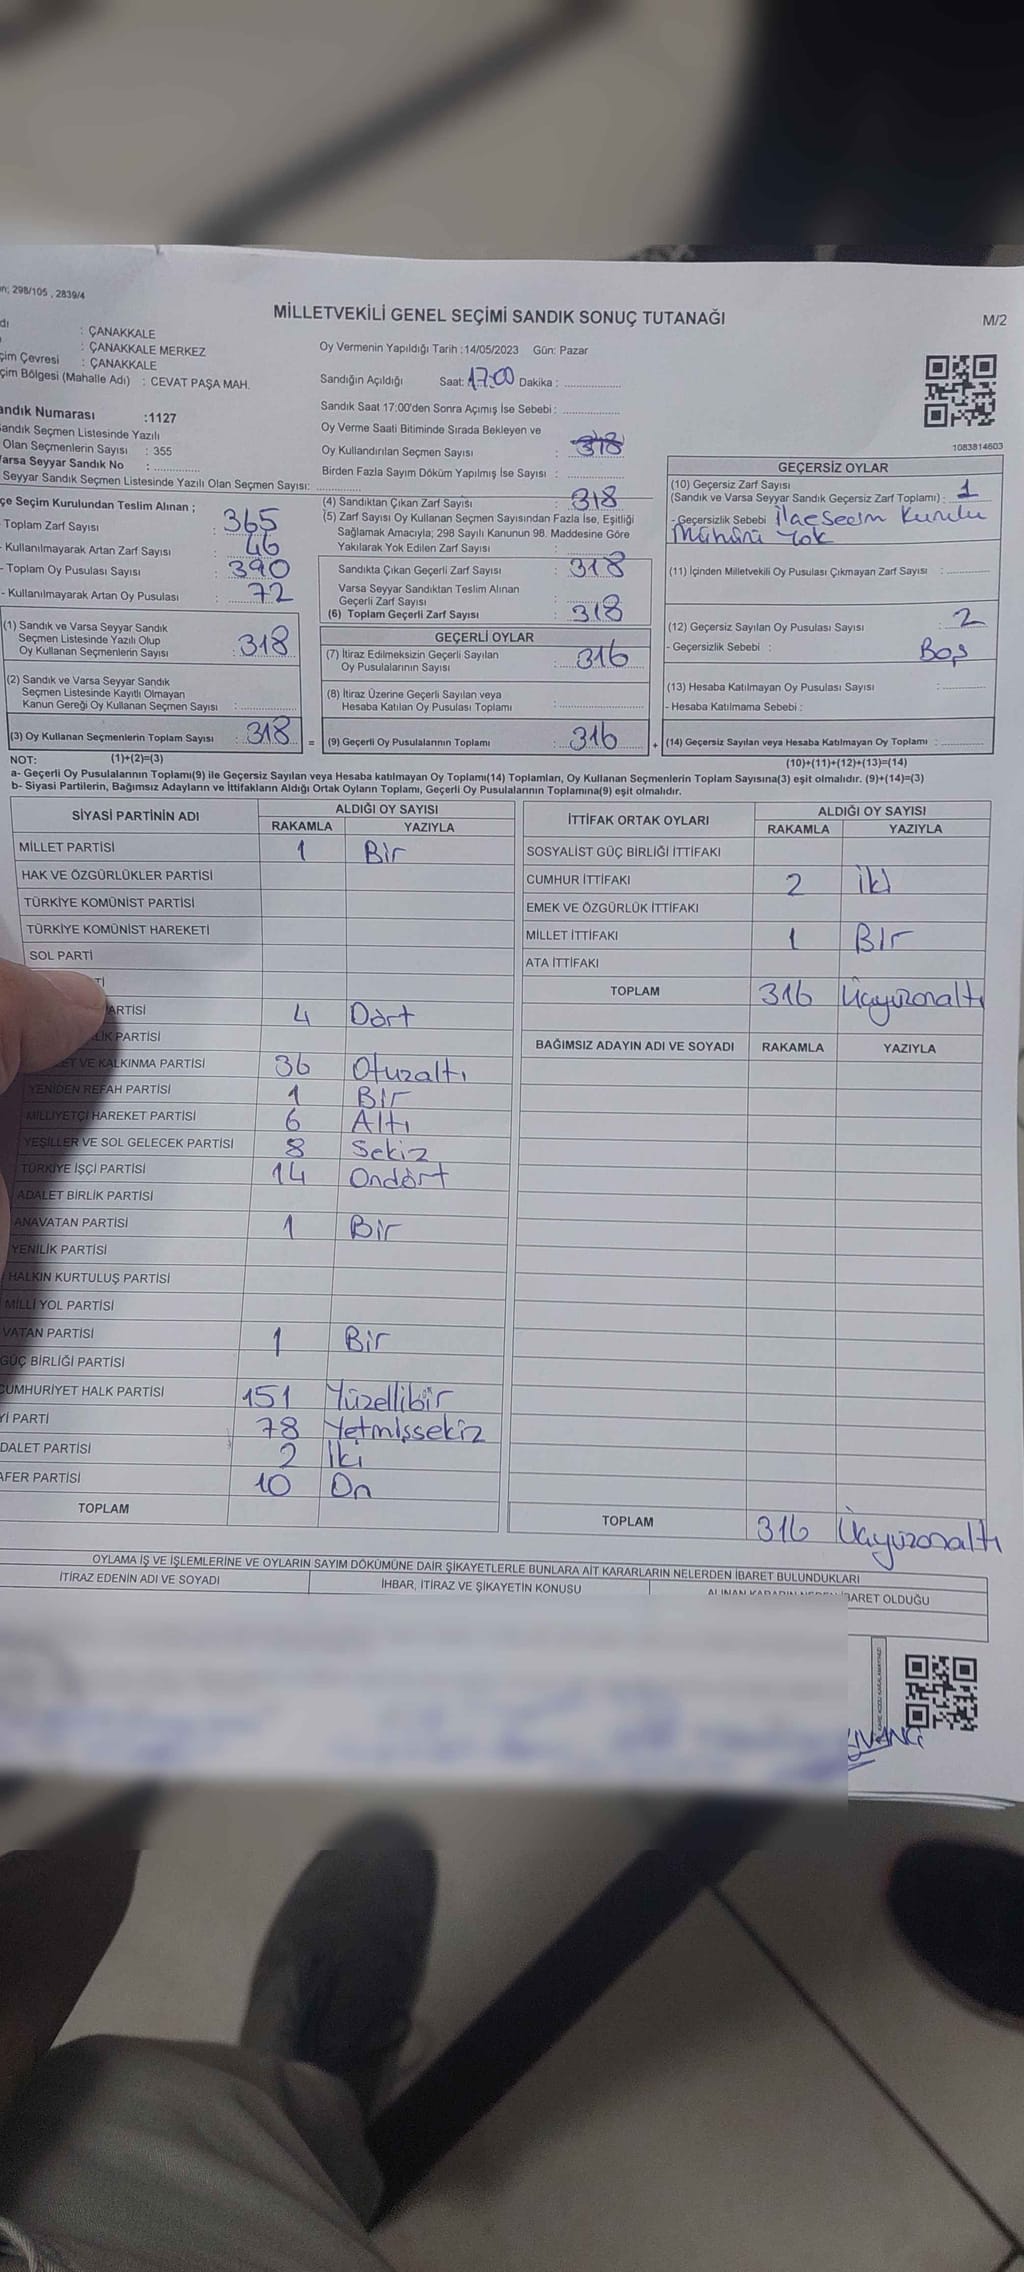 298/105 , 2839/4
MİLLETVEKİLİ GENEL SEÇİMİ SANDIK SONUÇ TUTANAĞI
M/2
: ÇANAKKALE
: ÇANAKKALE MERKEZ
çim Çevresi : ÇANAKKALE
çim Bölgesi (Mahalle Adı) : CEVAT PAŞA MAH.
andık Numarası :1127
Sandık Seçmen Listesinde Yazılı
Olan Seçmenlerin Sayısı : 355
Varsa Seyyar Sandık No :
Seyyar Sandık Seçmen Listesinde Yazılı Olan Seçmen Sayısı:
çe Seçim Kurulundan Teslim Alınan ;
- Toplam Zarf Sayısı : 365
- Kullanılmayarak Artan Zarf Sayısı : 46
- Toplam Oy Pusulası Sayısı : 390
- Kullanılmayarak Artan Oy Pusulası : 72
(1) Sandık ve Varsa Seyyar Sandık
Seçmen Listesinde Yazılı Olup
Oy Kullanan Seçmenlerin Sayısı : 318
(2) Sandık ve Varsa Seyyar Sandık
Seçmen Listesinde Kayıtlı Olmayan
Kanun Gereği Oy Kullanan Seçmen Sayısı :
(3) Oy Kullanan Seçmenlerin Toplam Sayısı : 318 =
Oy Vermenin Yapıldığı Tarih :14/05/2023 Gün: Pazar
Sandığın Açıldığı Saat: 17:00 Dakika :
Sandık Saat 17:00'den Sonra Açımış İse Sebebi :
Oy Verme Saati Bitiminde Sırada Bekleyen ve
Oy Kullandırılan Seçmen Sayısı : 318
Birden Fazla Sayım Döküm Yapılmış İse Sayısı :
(4) Sandıktan Çıkan Zarf Sayısı : 318
(5) Zarf Sayısı Oy Kullanan Seçmen Sayısından Fazla İse, Eşitliği
Sağlamak Amacıyla; 298 Sayılı Kanunun 98. Maddesine Göre
Yakılarak Yok Edilen Zarf Sayısı :
Sandıkta Çıkan Geçerli Zarf Sayısı : 318
Varsa Seyyar Sandıktan Teslim Alınan
Geçerli Zarf Sayısı :
(6) Toplam Geçerli Zarf Sayısı : 318
GEÇERLİ OYLAR
(7) İtiraz Edilmeksizin Geçerli Sayılan
Oy Pusulalarının Sayısı : 316
(8) İtiraz Üzerine Geçerli Sayılan veya
Hesaba Katılan Oy Pusulası Toplamı :
(9) Geçerli Oy Pusulalarının Toplamı : 316 +
1083814603
GEÇERSİZ OYLAR
(10) Geçersiz Zarf Sayısı
(Sandık ve Varsa Seyyar Sandık Geçersiz Zarf Toplamı) : 1
- Geçersizlik Sebebi : Kurulu
Mührü Yok
(11) İçinden Milletvekili Oy Pusulası Çıkmayan Zarf Sayısı :
(12) Geçersiz Sayılan Oy Pusulası Sayısı : 2
- Geçersizlik Sebebi : Boş
(13) Hesaba Katılmayan Oy Pusulası Sayısı :
- Hesaba Katılmama Sebebi :
(14) Geçersiz Sayılan veya Hesaba Katılmayan Oy Toplamı :
NOT: (1)+(2)=(3) (10)+(11)+(12)+(13)=(14)
a- Geçerli Oy Pusulalarının Toplamı(9) ile Geçersiz Sayılan veya Hesaba katılmayan Oy Toplamı(14) Toplamları, Oy Kullanan Seçmenlerin Toplam Sayısına(3) eşit olmalıdır. (9)+(14)=(3)
b- Siyasi Partilerin, Bağımsız Adayların ve İttifakların Aldığı Ortak Oyların Toplamı, Geçerli Oy Pusulalarının Toplamına(9) eşit olmalıdır.
SİYASİ PARTİNİN ADI ALDIĞI OY SAYISI
RAKAMLA YAZIYLA
MİLLET PARTİSİ 1 Bir
HAK VE ÖZGÜRLÜKLER PARTİSİ
TÜRKİYE KOMÜNİST PARTİSİ
TÜRKİYE KOMÜNİST HAREKETİ
SOL PARTİ
Tİ
ARTİSİ 4 Dört
LİK PARTİSİ
ET VE KALKINMA PARTİSİ 36 Otuzaltı
YENİDEN REFAH PARTİSİ 1 Bir
MİLLİYETÇİ HAREKET PARTİSİ 6 Altı
YEŞİLLER VE SOL GELECEK PARTİSİ 8 Sekiz
TÜRKİYE İŞÇİ PARTİSİ 14 Ondört
ADALET BİRLİK PARTİSİ
ANAVATAN PARTİSİ 1 Bir
YENİLİK PARTİSİ
HALKIN KURTULUŞ PARTİSİ
MİLLİ YOL PARTİSİ
VATAN PARTİSİ 1 Bir
GÜÇ BİRLİĞİ PARTİSİ
CUMHURİYET HALK PARTİSİ 151 Yüzellibir
Yİ PARTİ 78 Yetmişsekiz
DALET PARTİSİ 2 İki
AFER PARTİSİ 10 On
TOPLAM
İTTİFAK ORTAK OYLARI ALDIĞI OY SAYISI
RAKAMLA YAZIYLA
SOSYALİST GÜÇ BİRLİĞİ İTTİFAKI
CUMHUR İTTİFAKI 2 iki
EMEK VE ÖZGÜRLÜK İTTİFAKI
MİLLET İTTİFAKI 1 Bir
ATA İTTİFAKI
TOPLAM 316 Üçyüzonaltı
BAĞIMSIZ ADAYIN ADI VE SOYADI RAKAMLA YAZIYLA
TOPLAM 316 Üçyüzonaltı
OYLAMA İŞ VE İŞLEMLERİNE VE OYLARIN SAYIM DÖKÜMÜNE DAİR ŞİKAYETLERLE BUNLARA AİT KARARLARIN NELERDEN İBARET BULUNDUKLARI
İTİRAZ EDENİN ADI VE SOYADI İHBAR, İTİRAZ VE ŞİKAYETİN KONUSU ALINAN KARARIN NEDEN İBARET OLDUĞU